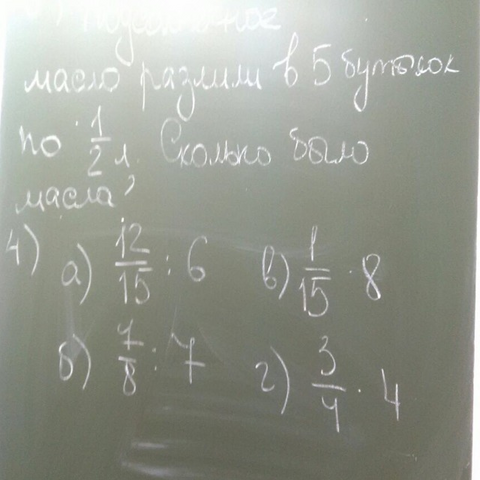 Подсолнечное
масло разлили в 5 бутылок
по 1/2 л. Сколько было
масла?
4) а) 12/15 : 6 в) 1/15 · 8
б) 7/8 : 7 г) 3/4 · 4